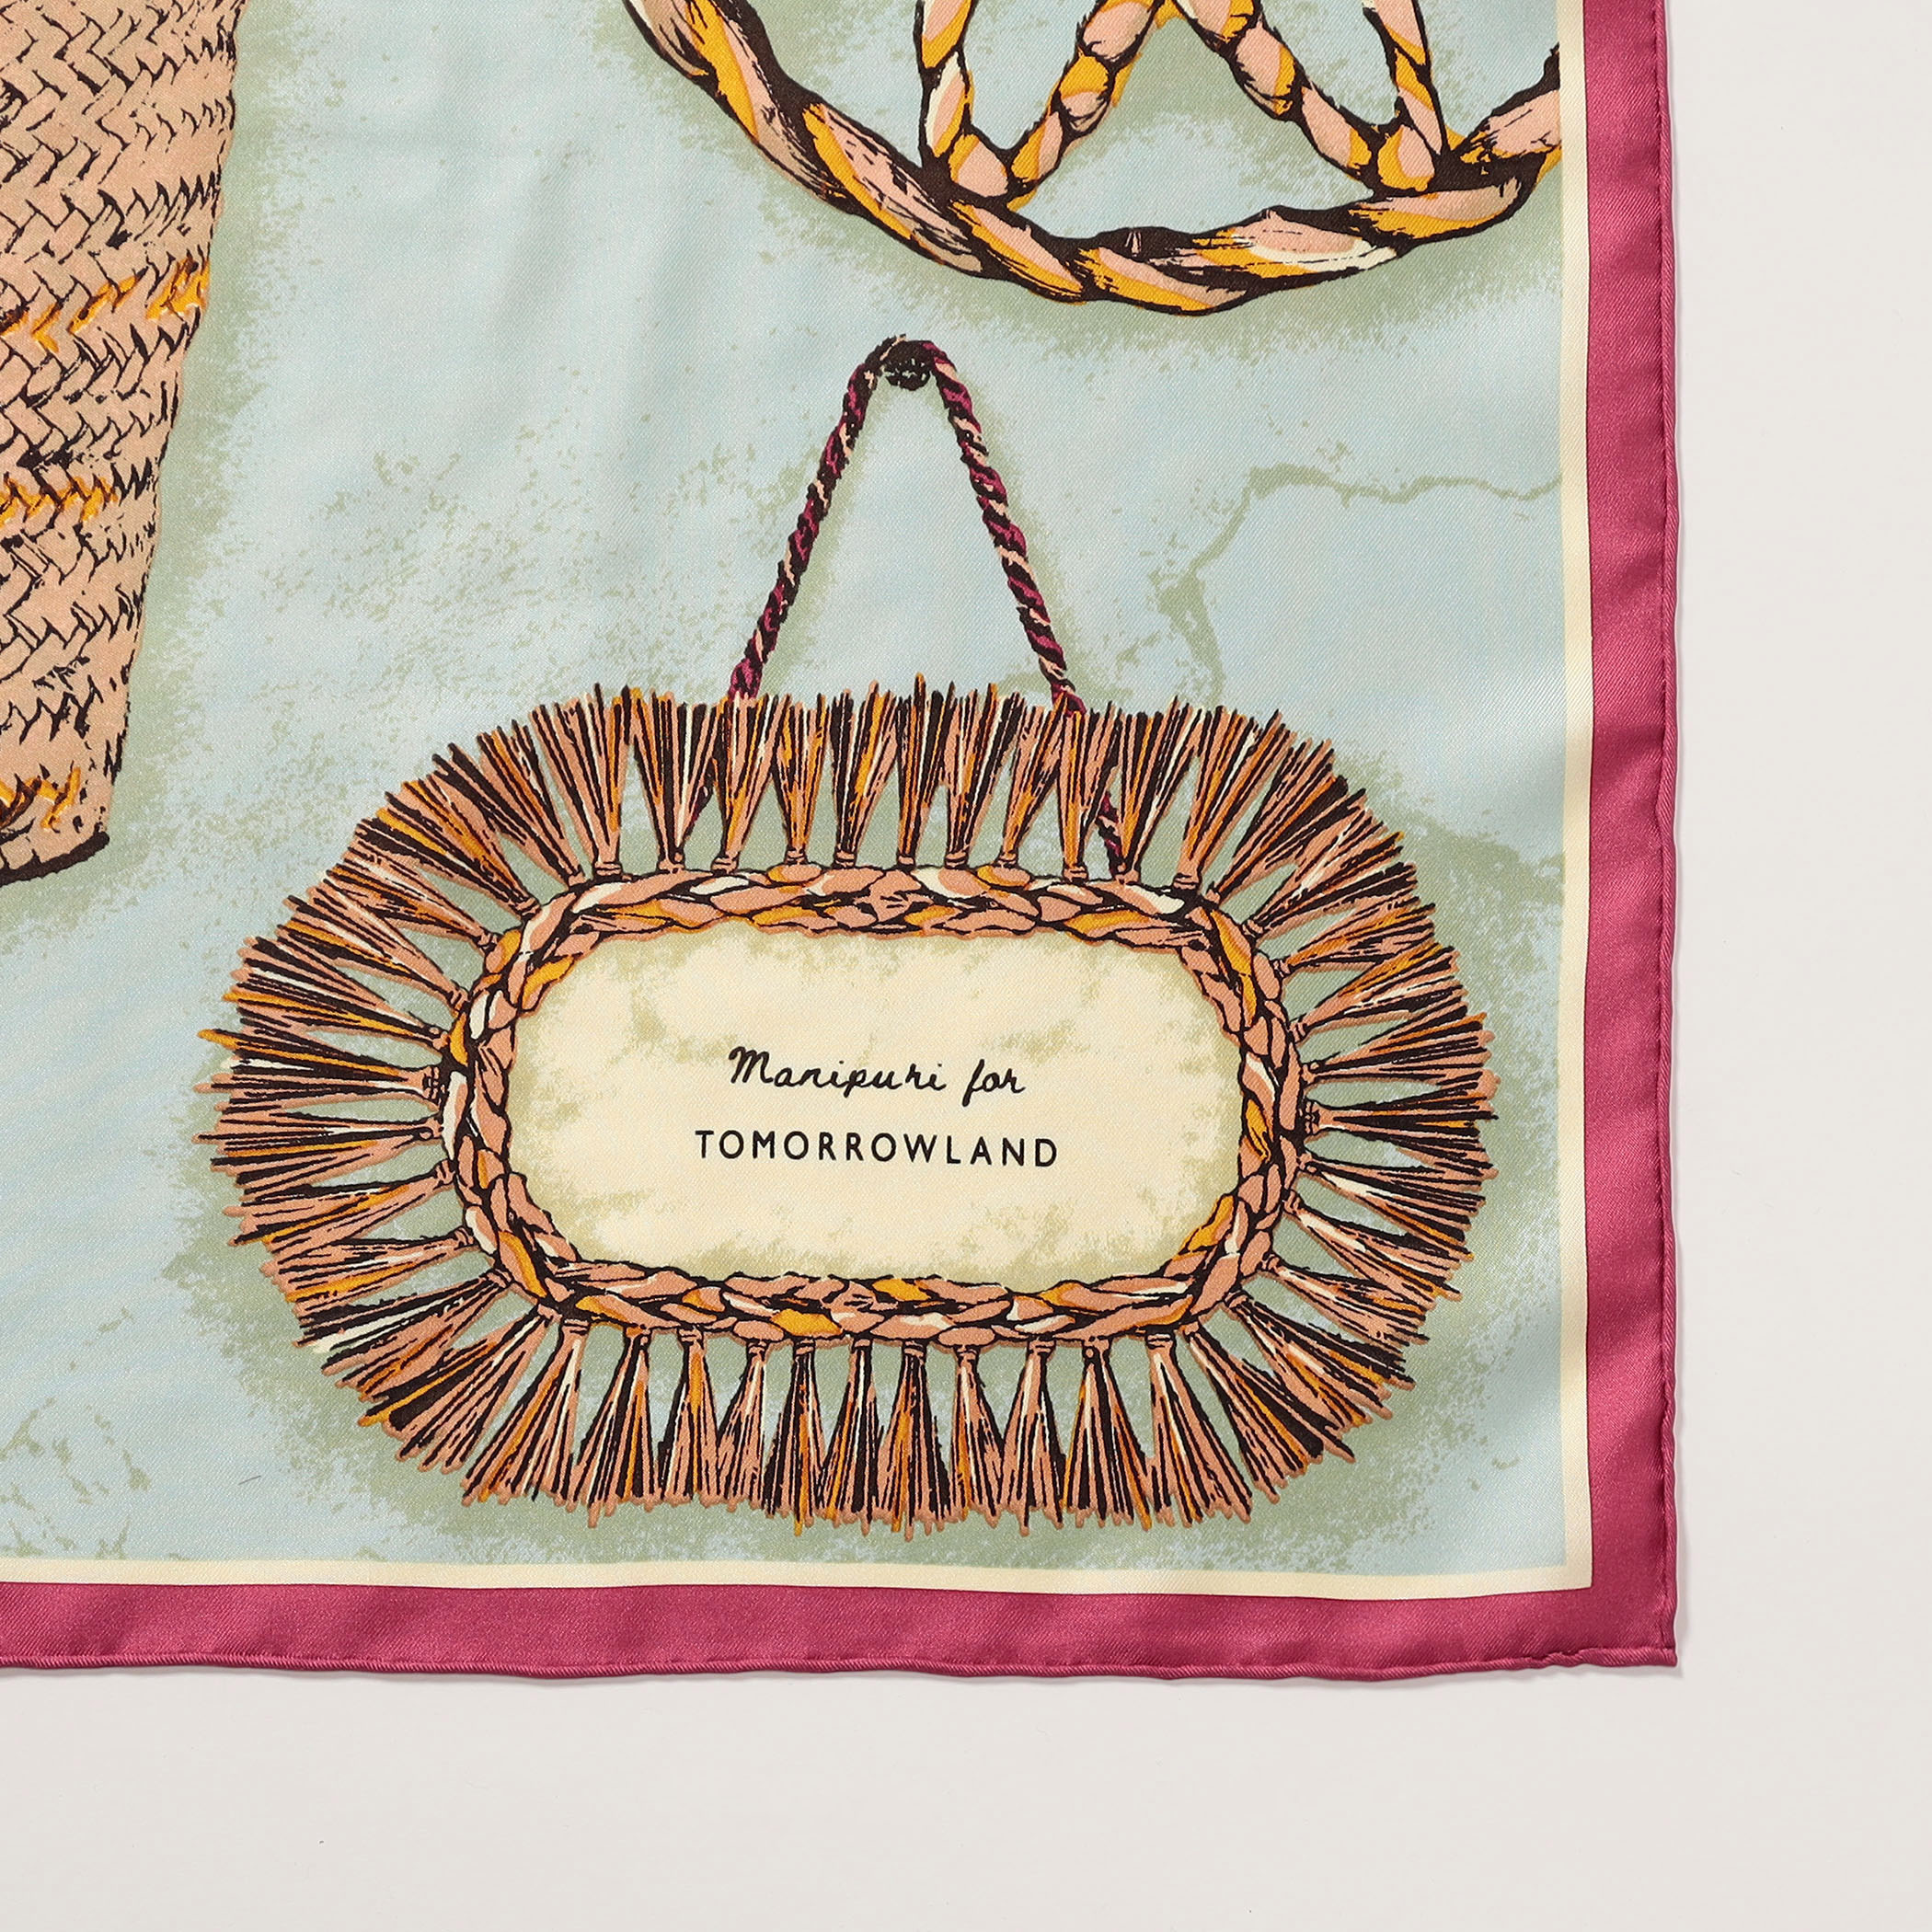 Manipuri for
TOMORROWLAND